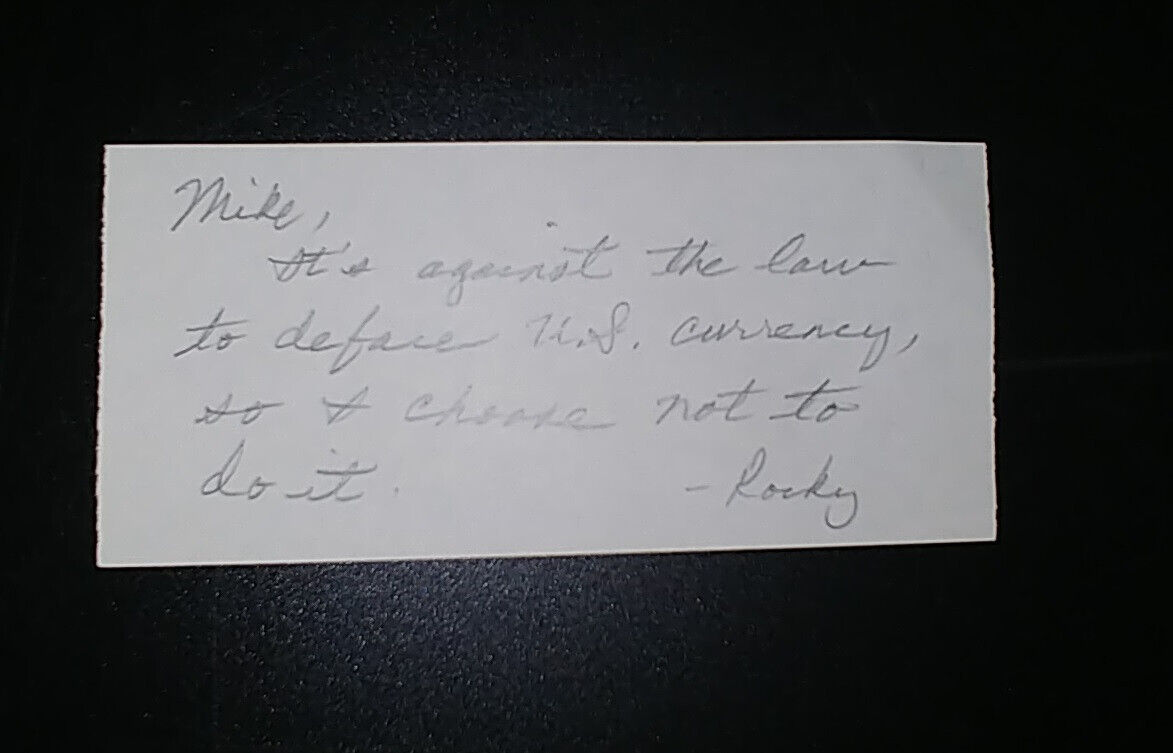 Mike,
It's against the law
to deface U.S. currency,
so I choose not to
do it. - Rocky